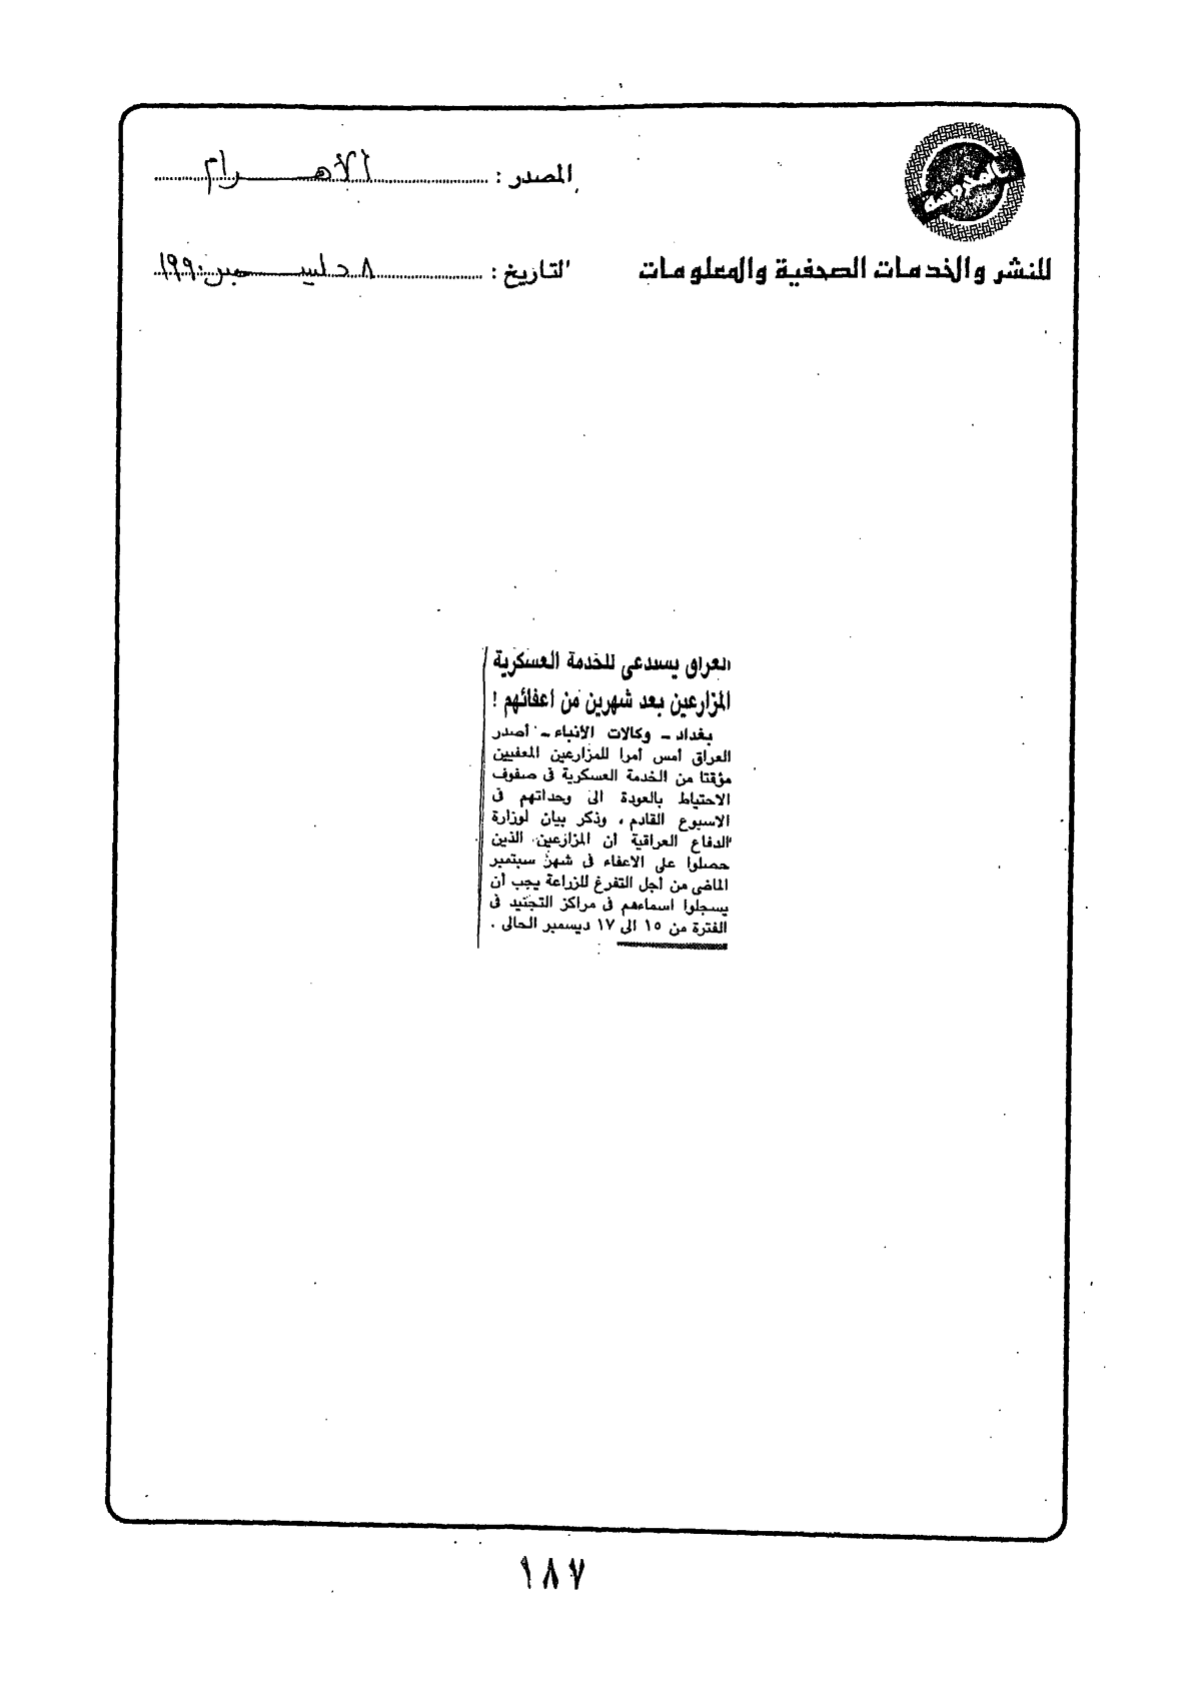 المحروسة
للنشر والخدمات الصحفية والمعلومات
المصدر : الأهرام
التاريخ : ٨ ديسمبر ١٩٩٠
العراق يستدعى للخدمة العسكرية
المزارعين بعد شهرين من اعفائهم !
بغداد - وكالات الأنباء - أصدر
العراق أمس أمرا للمزارعين المعفيين
مؤقتا من الخدمة العسكرية فى صفوف
الاحتياط بالعودة الى وحداتهم فى
الاسبوع القادم ، وذكر بيان لوزارة
الدفاع العراقية أن المزارعين الذين
حصلوا على الاعفاء فى شهر سبتمبر
الماضى من أجل التفرغ للزراعة يجب أن
يسجلوا اسماءهم فى مراكز التجنيد فى
الفترة من ١٥ الى ١٧ ديسمبر الحالى .
١٨٧